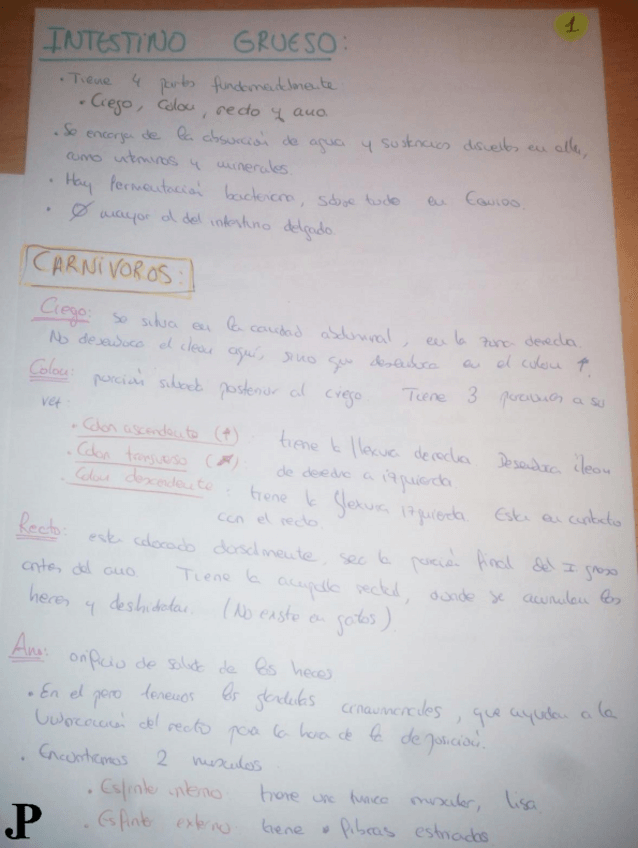 1
INTESTINO GRUESO:
• Tiene 4 partes fundamentalmente
• Ciego, Colon, recto y ano
• Se encarga de la absorción de agua y sustancias disueltas en ella,
como vitaminas y minerales.
• Hay fermentación bacteriana, sobre todo en Equino.
• Ø mayor al del intestino delgado.
CARNÍVOROS:
Ciego: se situa en la cavidad abdominal, en la zona derecha.
No desemboca el ileon aquí, sino que desemboca en el colon ↑.
Colon: porción situada posterior al ciego Tiene 3 porciones a su
vez:
• Colon ascendente (↑) tiene la flexura derecha Desemboca ileon
• Colon transverso (↗) de derecha a izquierda
• Colon descendente: tiene la flexura izquierda. Esta en contacto
con el recto.
Recto: esta colocado dorsalmente, sera la porción final del I. grueso
antes del ano. Tiene la ampolla rectal, donde se acumulan las
heces y deshidratar. (No existe en gatos)
Ano: orificio de salida de las heces
• En el perro tenemos las glandulas circumanales, que ayudan a la
lubricación del recto para la hora de la deposición.
• Encontramos 2 musculos
• Esfinter interno tiene una tunica muscular, lisa
• Esfinter externo tiene fibras estriadas
JP